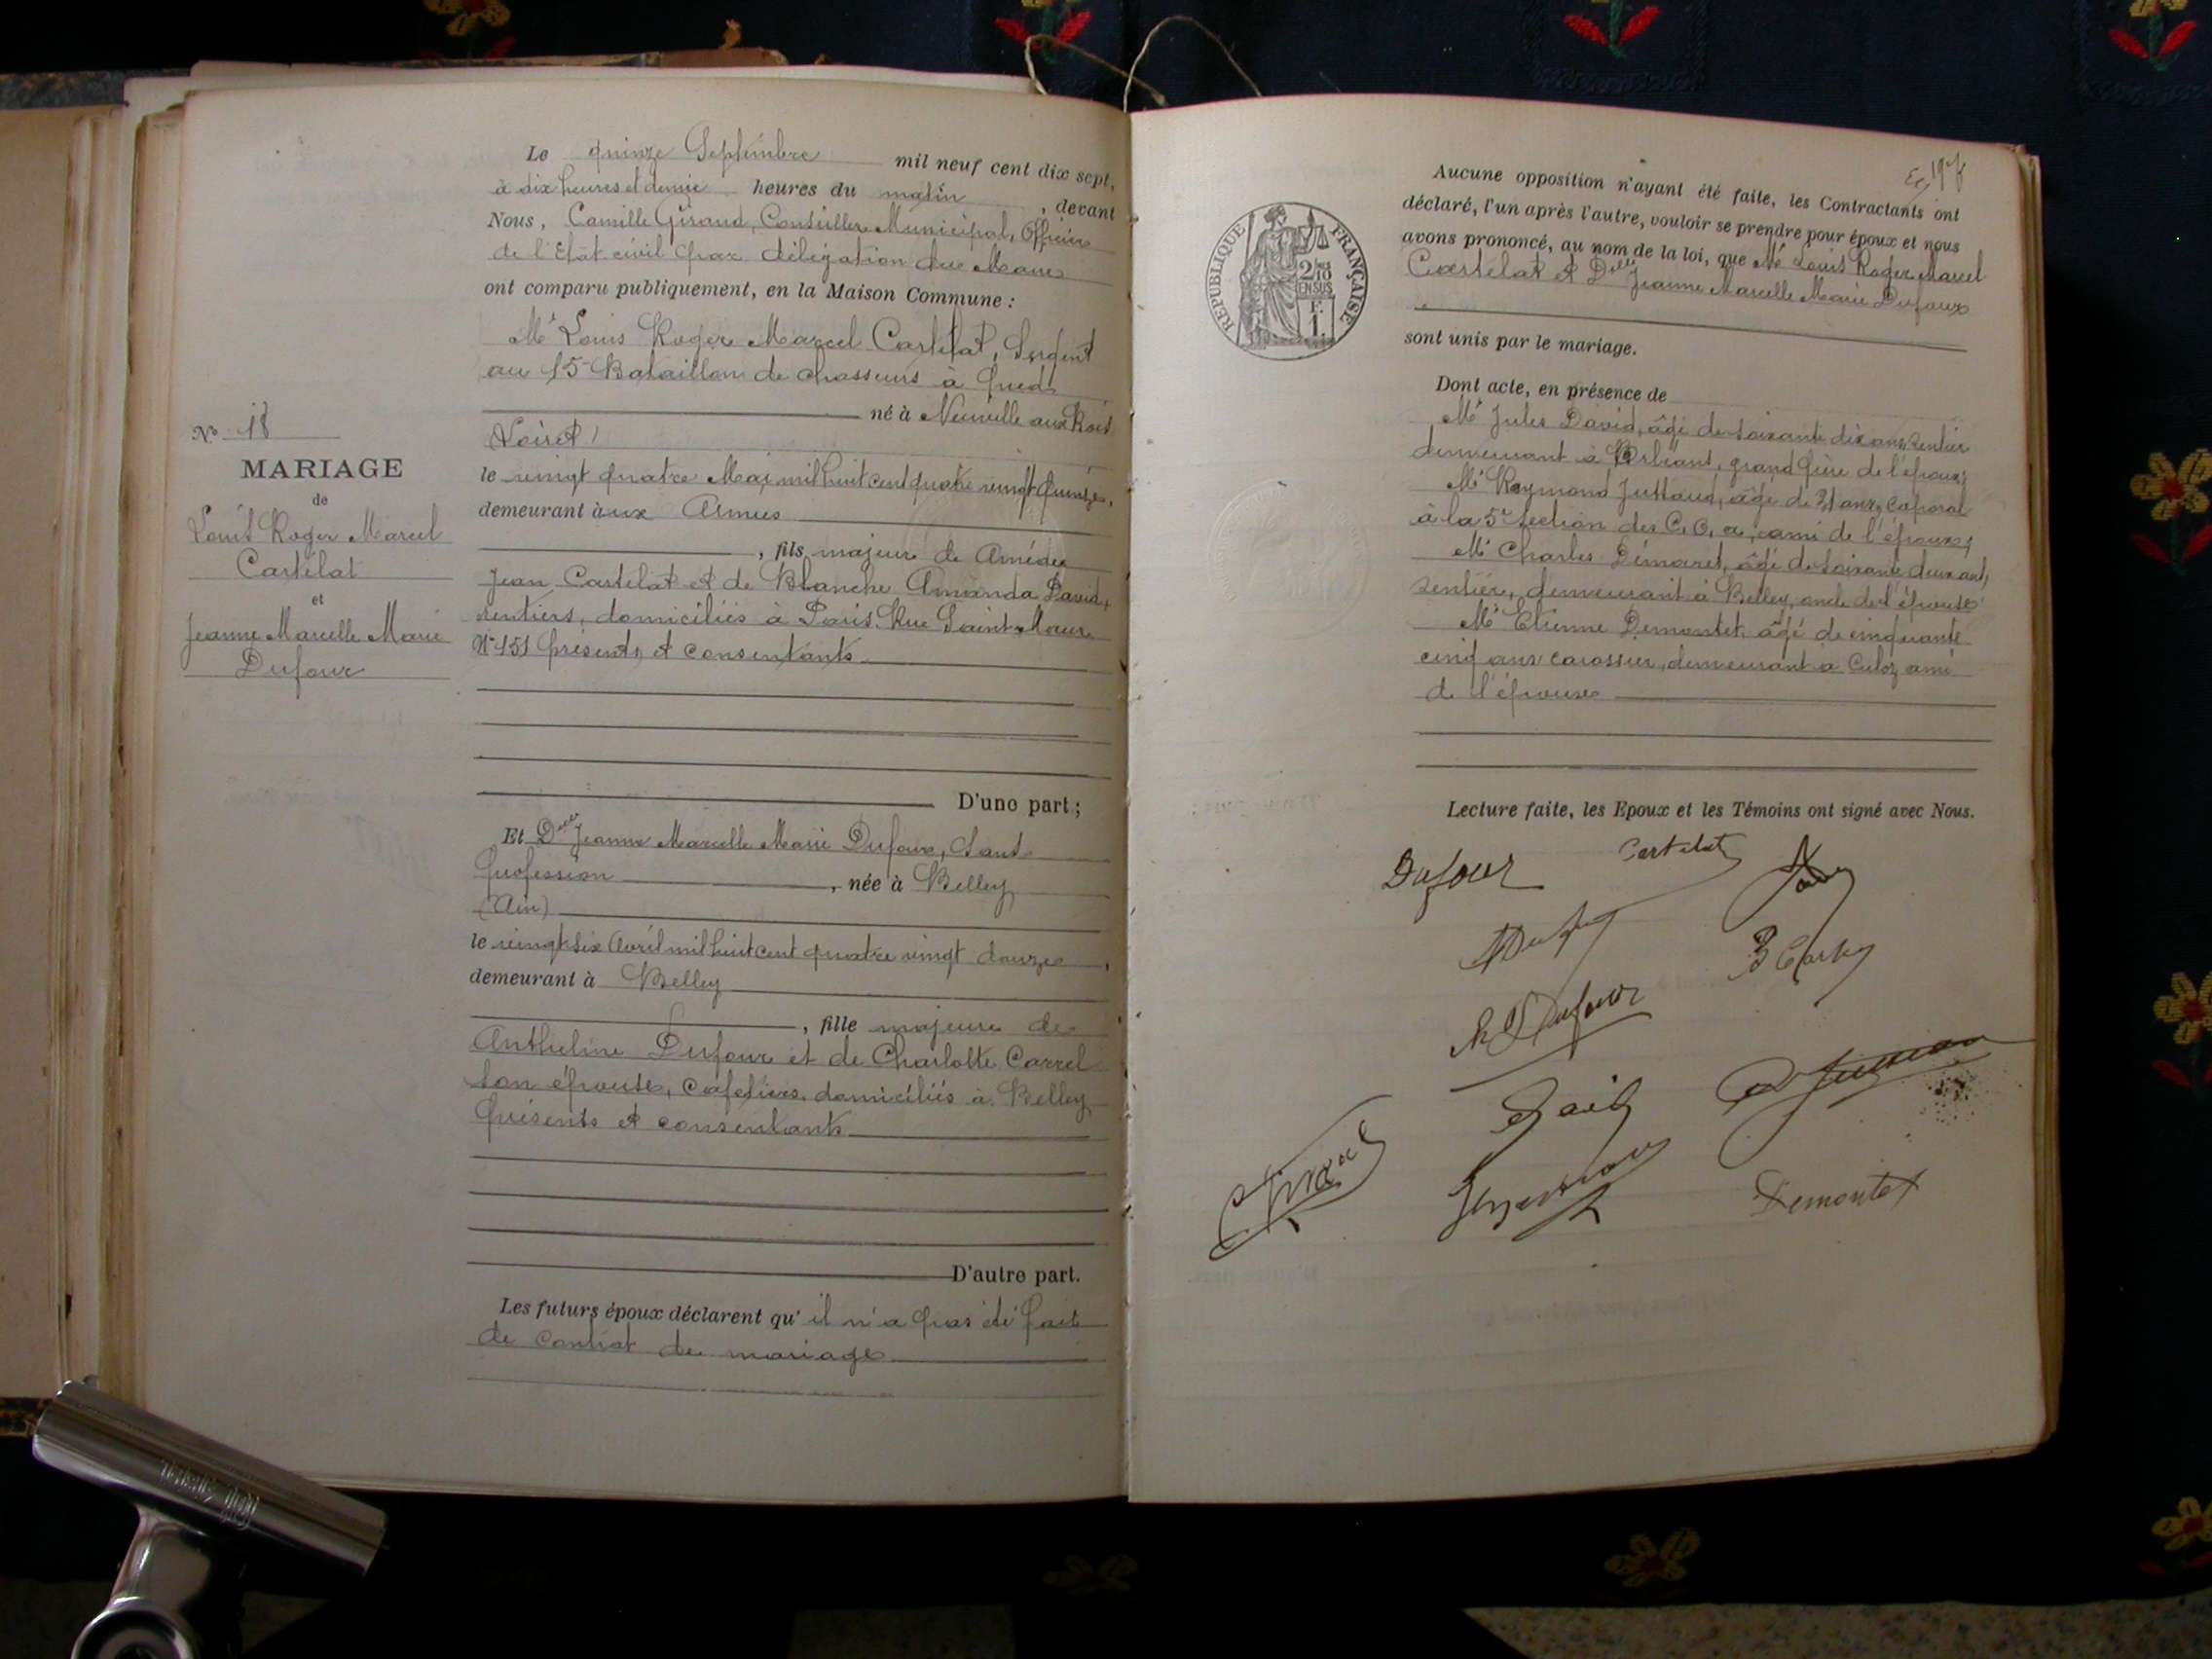 Le quinze Septembre mil neuf cent dix sept,
à dix heures et demie heures du matin, devant
Nous, Camille Giraud, Conseiller Municipal, Officier
de l'Etat civil par délégation du Maire
ont comparu publiquement, en la Maison Commune :
Mr Louis Roger Marcel Castelat, Sergent
au 15e Bataillon de chasseurs à pied
né à Neuville aux Bois
(Loiret)
le vingt quatre Mai mil huit cent quatre vingt quinze,
demeurant aux Armées
, fils majeur de Amédée
Jean Castelat et de Blanche Amanda David,
rentiers, domiciliés à Paris Rue Saint Maur
No 151 présents et consentants
D'une part ;
No 18
MARIAGE
de
Louis Roger Marcel
Castelat
et
Jeanne Marcelle Marie
Dufour
Et Delle Jeanne Marcelle Marie Dufour, Sans
profession, née à Belley
(Ain)
le vingt six Avril mil huit cent quatre vingt douze,
demeurant à Belley
, fille majeure de
Anthelme Dufour et de Charlotte Carrel
son épouse, cafetiers, domiciliés à Belley
présents et consentants
D'autre part.
Les futurs époux déclarent qu'il n'a pas été fait
de contrat de mariage
REPUBLIQUE FRANÇAISE
2/10
EN SUS
F.
1.
Aucune opposition n'ayant été faite, les Contractants ont
déclaré, l'un après l'autre, vouloir se prendre pour époux et nous
avons prononcé, au nom de la loi, que Mr Louis Roger Marcel
Castelat et Delle Jeanne Marcelle Marie Dufour
sont unis par le mariage.
Dont acte, en présence de
Mr Jules David, âgé de soixante dix ans, rentier
demeurant à Orléans, grand père de l'époux,
Mr Raymond Juttaud, âgé de ans, caporal
à la 5e Section des C. O. a, ami de l'époux,
Mr Charles Démaret, âgé de soixante deux ans,
rentier, demeurant à Belley, oncle de l'épouse
Mr Etienne Demontet, âgé de cinquante
cinq ans carossier, demeurant à Culoz, ami
de l'épouse
Lecture faite, les Epoux et les Témoins ont signé avec Nous.
Dufour
Castelat
Dufour
Demontet